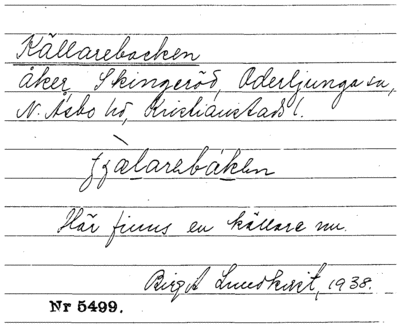 Källarebacken
åker, Skingeröd, Oderljunga sn,
N. Åsbo hd, Kristianstads l.
Här finns en källare nu.
Birgit Lundkvist, 1938.
Nr 5499.